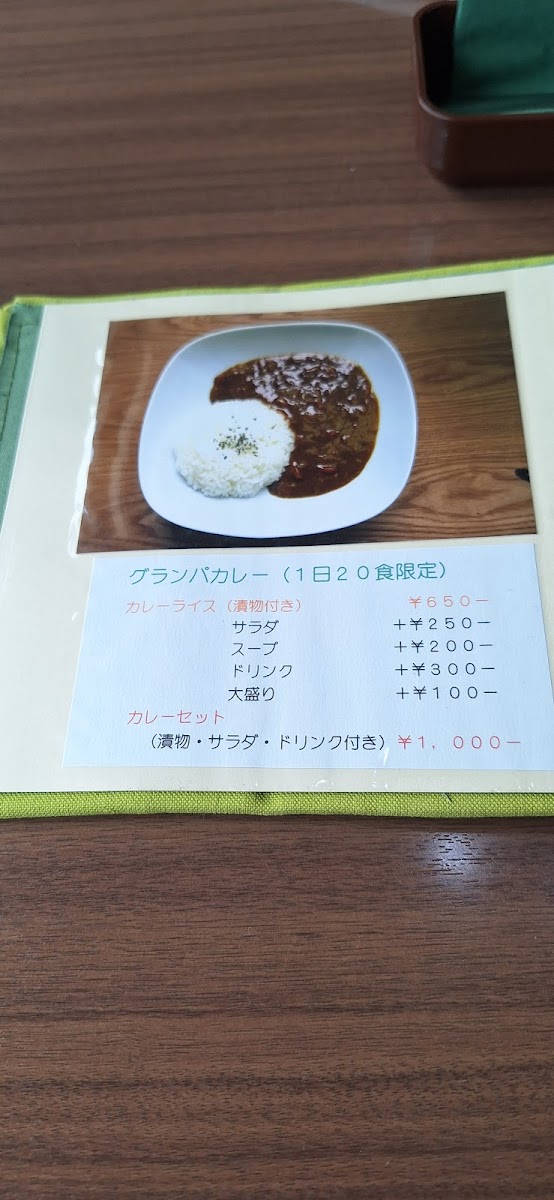 グランパカレー（１日２０食限定）
カレーライス（漬物付き） ￥６５０－
サラダ ＋￥２５０－
スープ ＋￥２００－
ドリンク ＋￥３００－
大盛り ＋￥１００－
カレーセット
（漬物・サラダ・ドリンク付き） ￥１，０００－